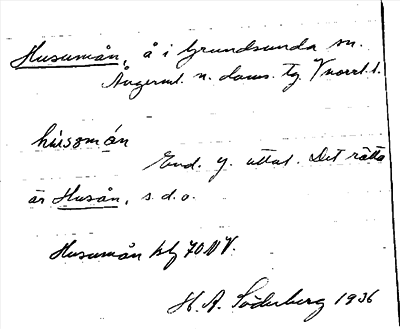 Husumån, å i Grundsunda sn.
Ångerml. n. doms. Tg. Vnorrl. l.
húsomán
End. y. uttal. Det rätta
är Husån, s.d.o.
Husumån kbl 70 NV.
H. A. Söderberg 1936